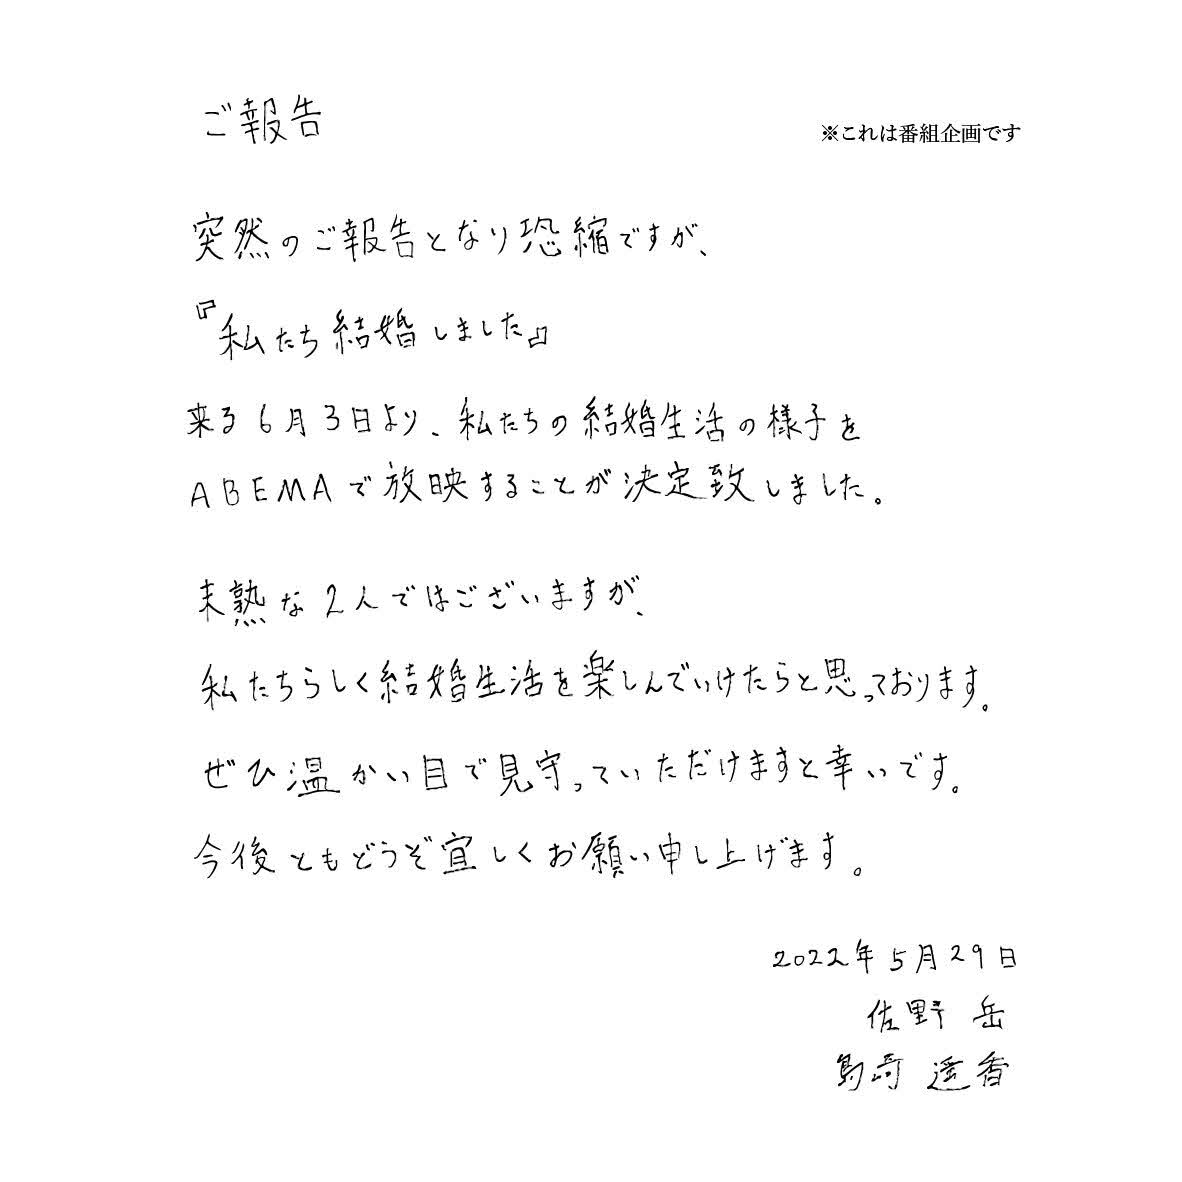 ご報告
※これは番組企画です
突然のご報告となり恐縮ですが、
『私たち結婚しました』
来る6月3日より、私たちの結婚生活の様子を
ABEMAで放映することが決定致しました。
未熟な2人ではございますが、
私たちらしく結婚生活を楽しんでいけたらと思っております。
ぜひ温かい目で見守っていただけますと幸いです。
今後ともどうぞ宜しくお願い申し上げます。
2022年5月29日
佐野 岳
島崎 遥香